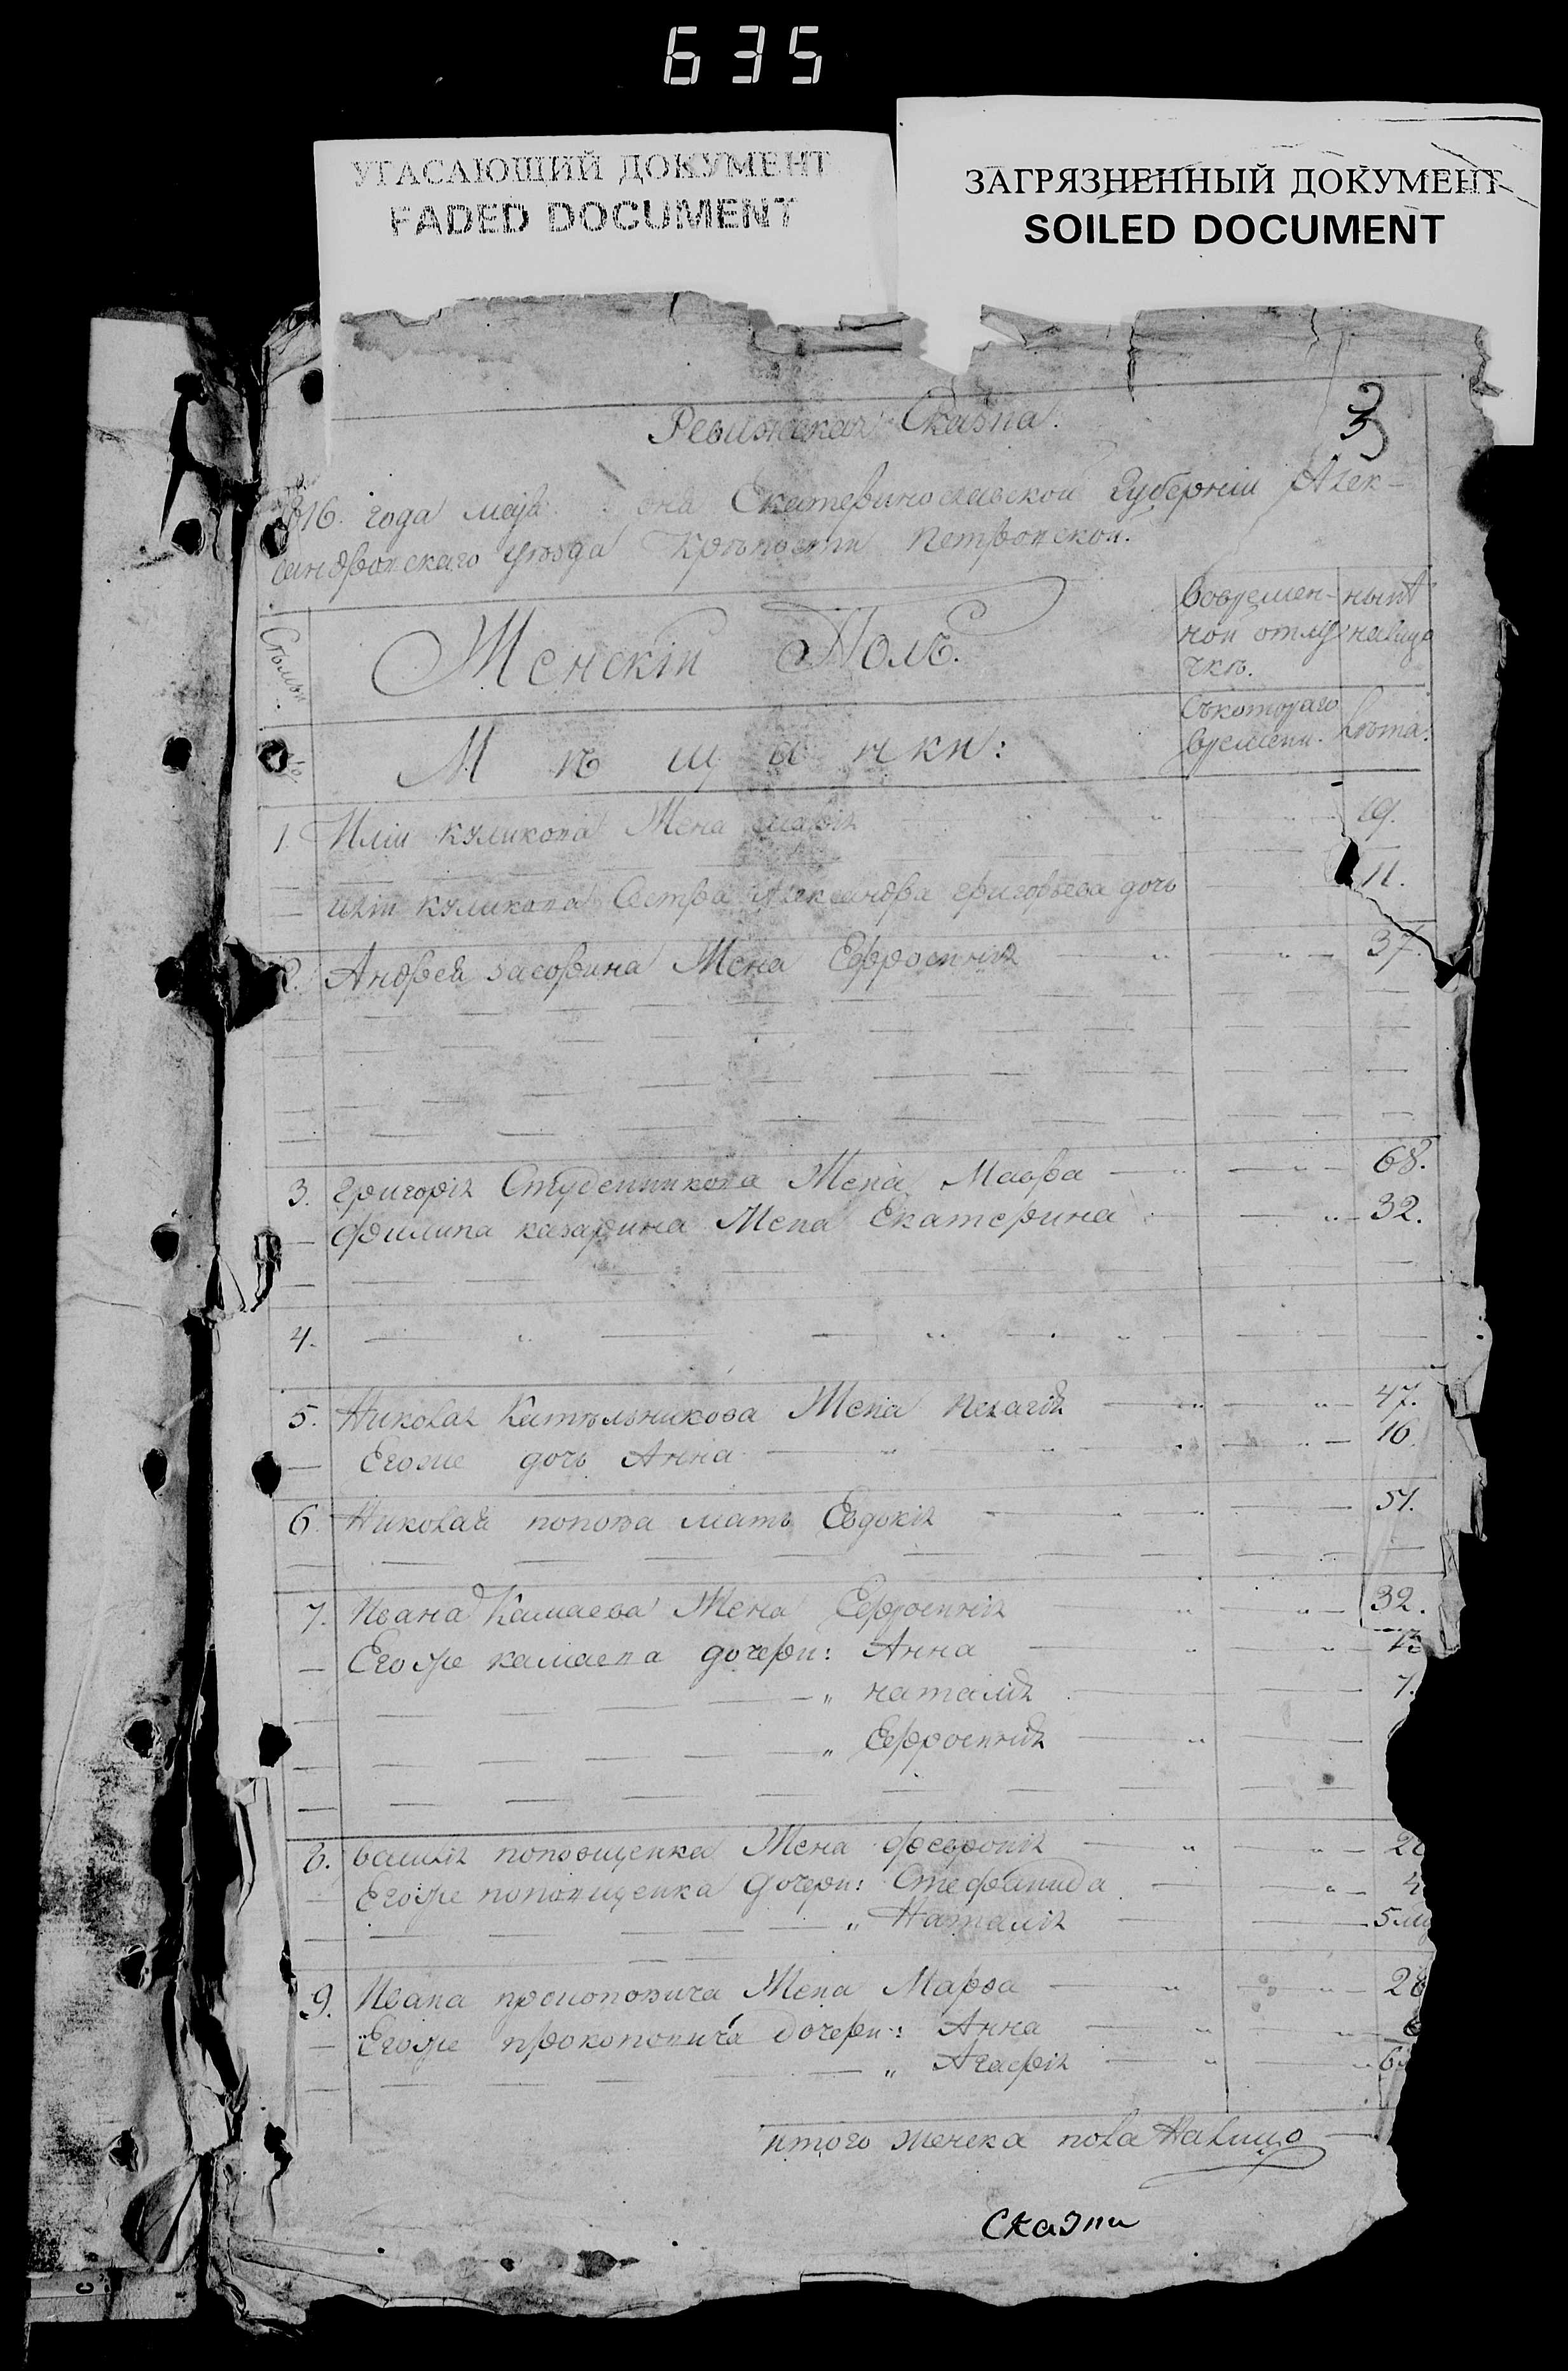 635
УГАСАЮЩИЙ ДОКУМЕНТ
FADED DOCUMENT
ЗАГРЯЗНЕННЫЙ ДОКУМЕНТ
SOILED DOCUMENT
3
Ревижская Сказка.
816. года маїя дня Екатеринославской Губерніи Алек-
сандровскаго уѣзда Крѣпости Петровской.
Женскій Полъ.
Вовремен-
ной отлу
чкѣ.
нынѣ
налицо
Мѣщанки:
Съкотораго
времени.
Лѣта.
1. Иліи куликова Жена марія 19.
иліи куликова Сестра Александра григорьева дочь 11.
2. Андрея засорина Жена Ефросинія 37.
3. Григорія Студенникова Жена Мавра 68.
Филипа казарина Жена Екатерина 32.
4.
5. Николая Катѣльникова Жена пелагія 47.
Егоже дочь Анна 16.
6. Николая попова мать Евдокія 51.
7. Ивана Камаева Жена Ефросинія 32.
Егоже камаева дочери: Анна
" наталія 7.
" Ефросинія
8. василія поповиценка Жена феврония
Егоже поповиценка дочери: Стефанида
" Наталія
9. Ивана прокоповича Жена Марфа 28
Егоже прокоповича дочери: Анна
" Агафія
итого женска пола Налицо
Сказки